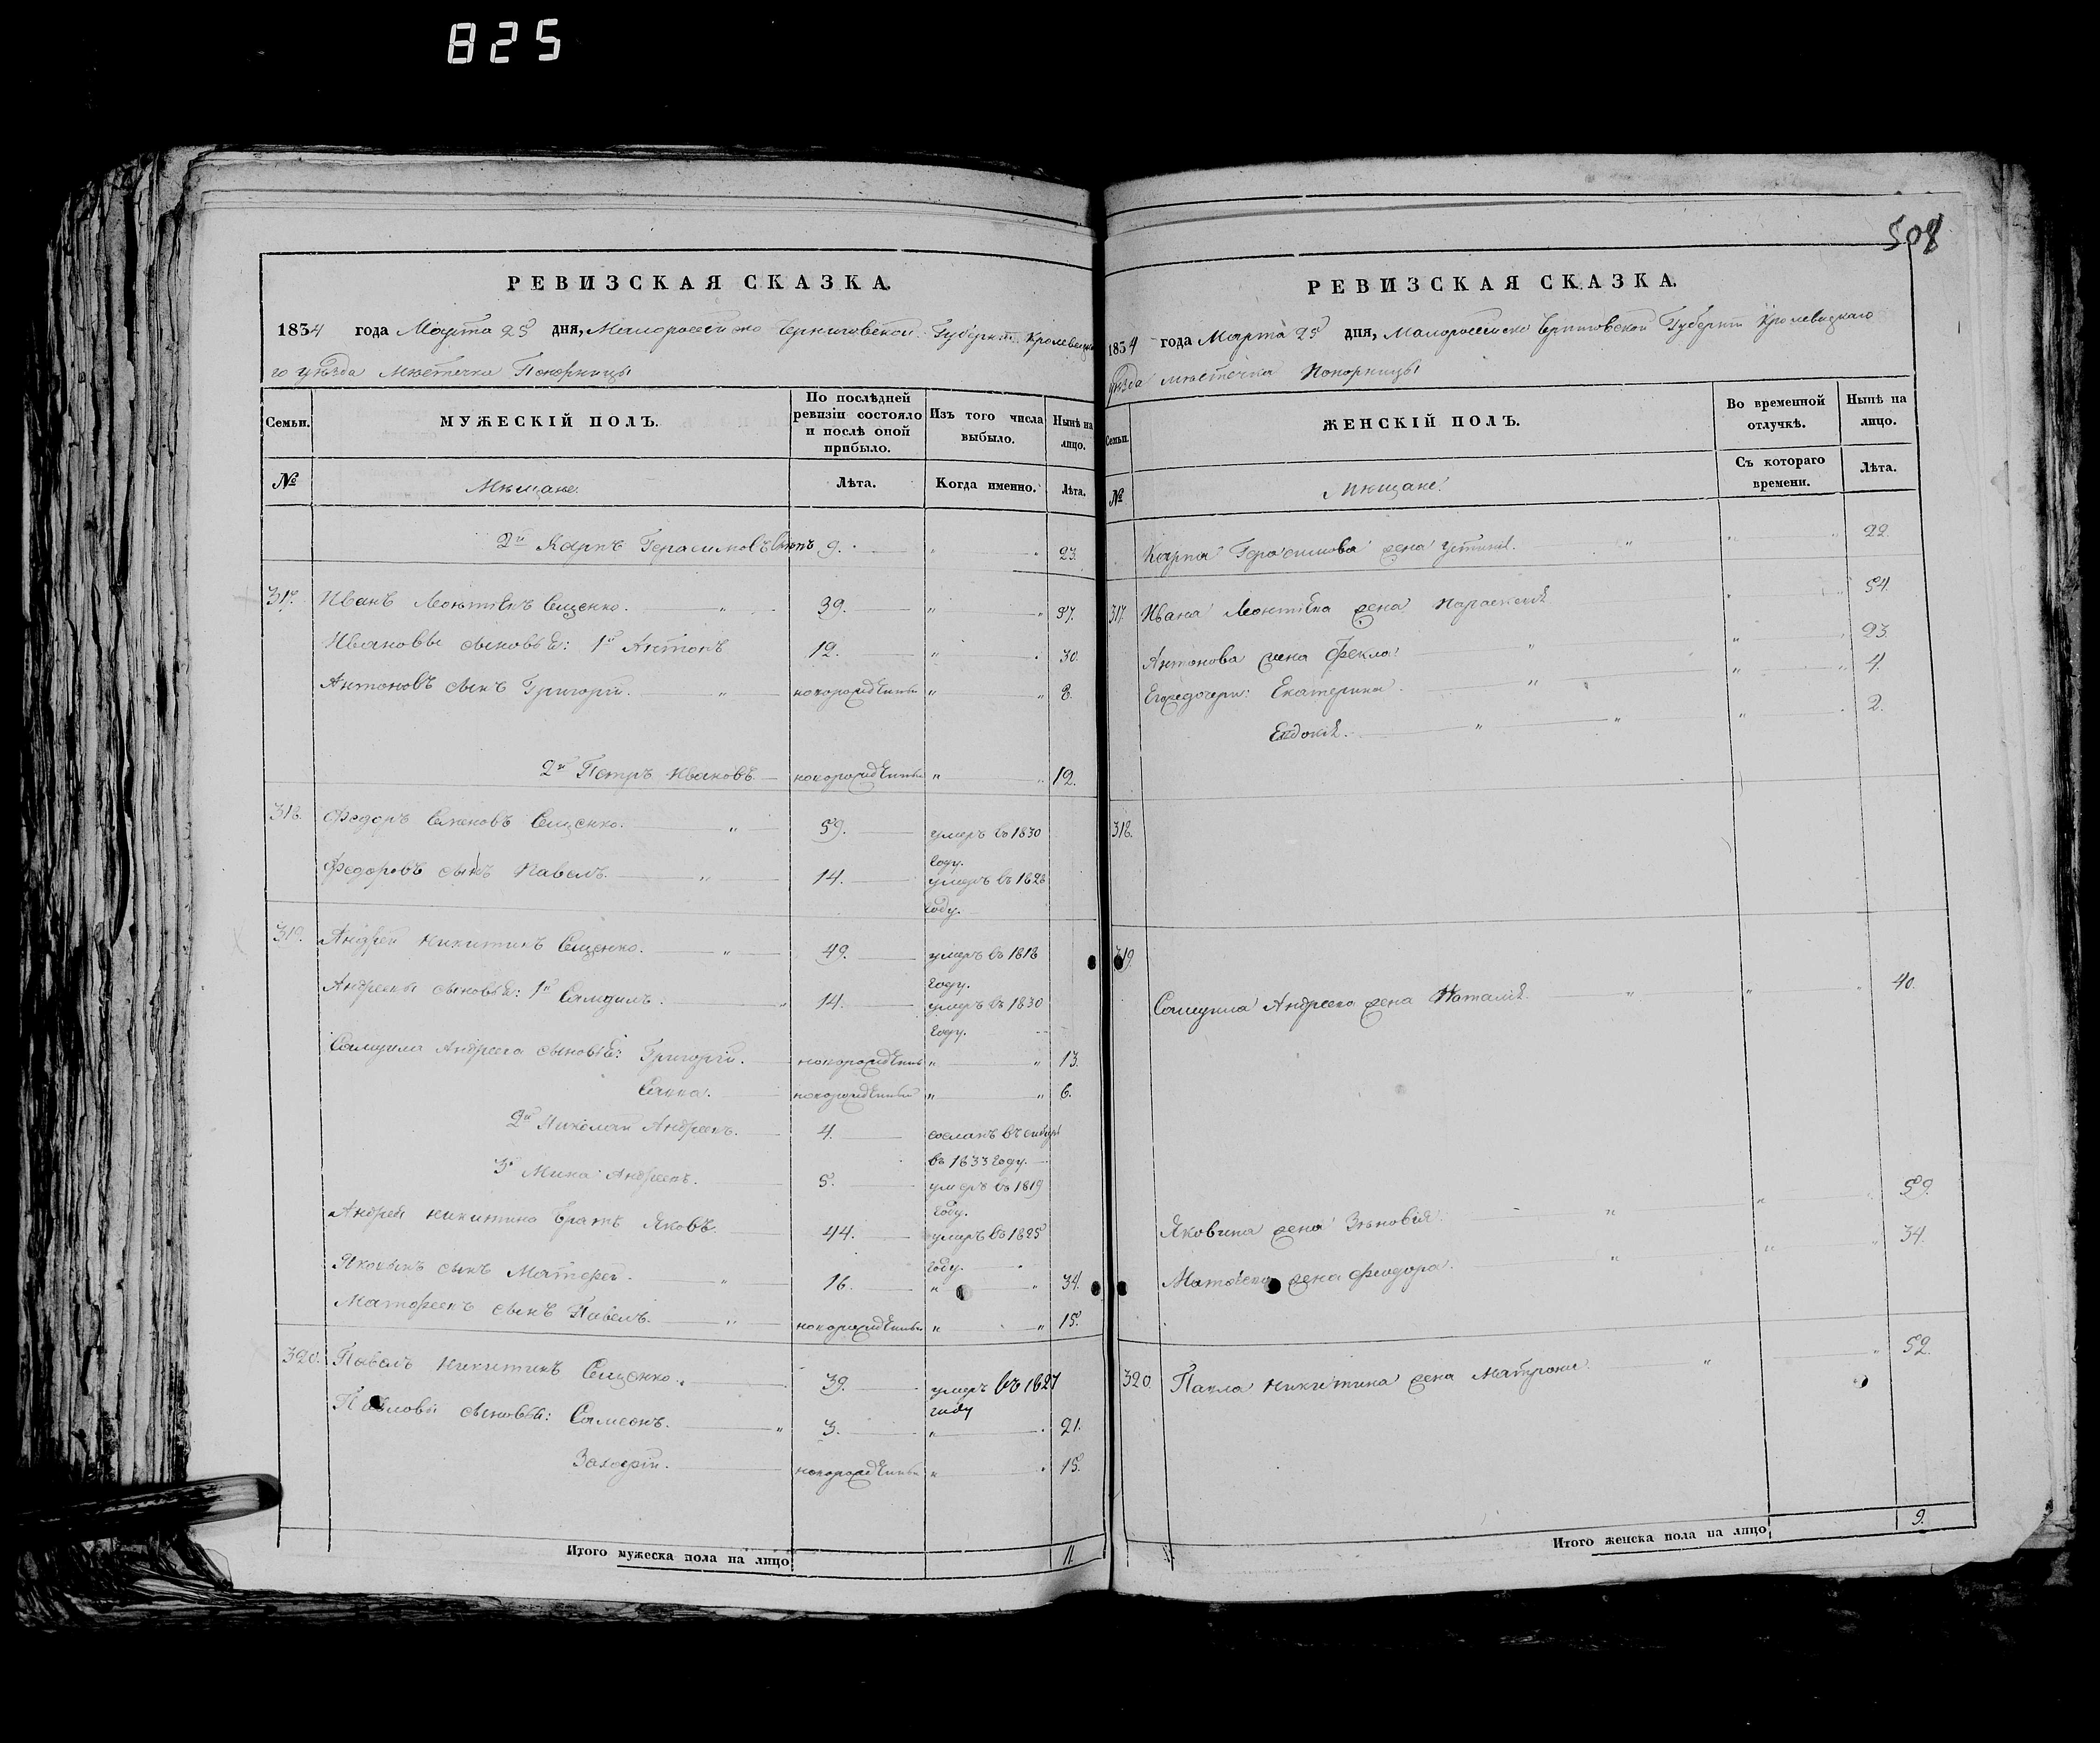 825
508
РЕВИЗСКАЯ СКАЗКА.
1834 года Марта 25 дня, Малороссійско Черниговской Губерніи Кролевецка
го уѣзда Мѣстечка Понорницы
Семьи. МУЖЕСКІЙ ПОЛЪ. По послѣдней ревизіи состояло и послѣ оной прибыло. Изъ того числа выбыло. Нынѣ на лицо.
№ Мѣщане. Лѣта. Когда именно. Лѣта.
2й Карпъ Герасимовъ 9. " " 23.
317. Иванъ Леонтіевъ Сащенко. " 39. " " 57.
Ивановы сыновья: 1й Антонъ 12. " " 30.
Антоновъ сынъ Григорій. " новорожденный " " 8.
2й Петръ Ивановъ. новорожденный " " 12.
318. Федоръ Семеновъ Сащенко. " 59. умеръ въ 1830
году.
Федоровъ сынъ Павелъ. " 14. умеръ въ 1828
году.
319. Андрей Никитинъ Сащенко. " 49. умеръ въ 1818
году.
Андреевы сыновья: 1й Самуилъ. " 14. умеръ въ 1830
году.
Самуила Андреева сыновья: Григорій. новорожденный " " 13.
Савва. новорожденный " " 6.
2й Николай Андреевъ. 4. сосланъ въ сибирь
въ 1833 году.
3й Мина Андреевъ. 5. умеръ въ 1819
году.
Андрея Никитина братъ Яковъ. 44. умеръ въ 1825
году.
Яковъ сынъ Матфей. " 16. " " 34.
Матфеевъ сынъ Павелъ. " новорожденный " " 15.
320. Павелъ Никитинъ Сащенко. 39. умеръ въ 1827
году
Павловы сыновья: Самсонъ. " 3. " 21.
Захарій. новорожденный " 15.
Итого мужеска пола на лицо 11.
РЕВИЗСКАЯ СКАЗКА.
1834 года Марта 25 дня, Малороссійско Черниговской Губерніи Кролевецкаго
уѣзда мѣстечка Понорницы
Семьи. ЖЕНСКІЙ ПОЛЪ. Во временной отлучкѣ. Нынѣ на лицо.
№ Мѣщане. Съ котораго времени. Лѣта.
Карпа Герасимова жена Устинія. " " " 22.
317. Ивана Леонтіева жена Параскевія " " 54.
Антонова жена Фекла. " " " 23.
Его дочери: Екатерина. " " " 4.
Евдокія. " " " 2.
318.
319.
Самуила Андреева жена Наталія. " " " 40.
Яковина жена Зѣновія. " " " 59.
Матвѣева жена Феодора. " " " 34.
320. Павла Никитина жена Матрона. " " 52.
Итого женска пола на лицо 9.